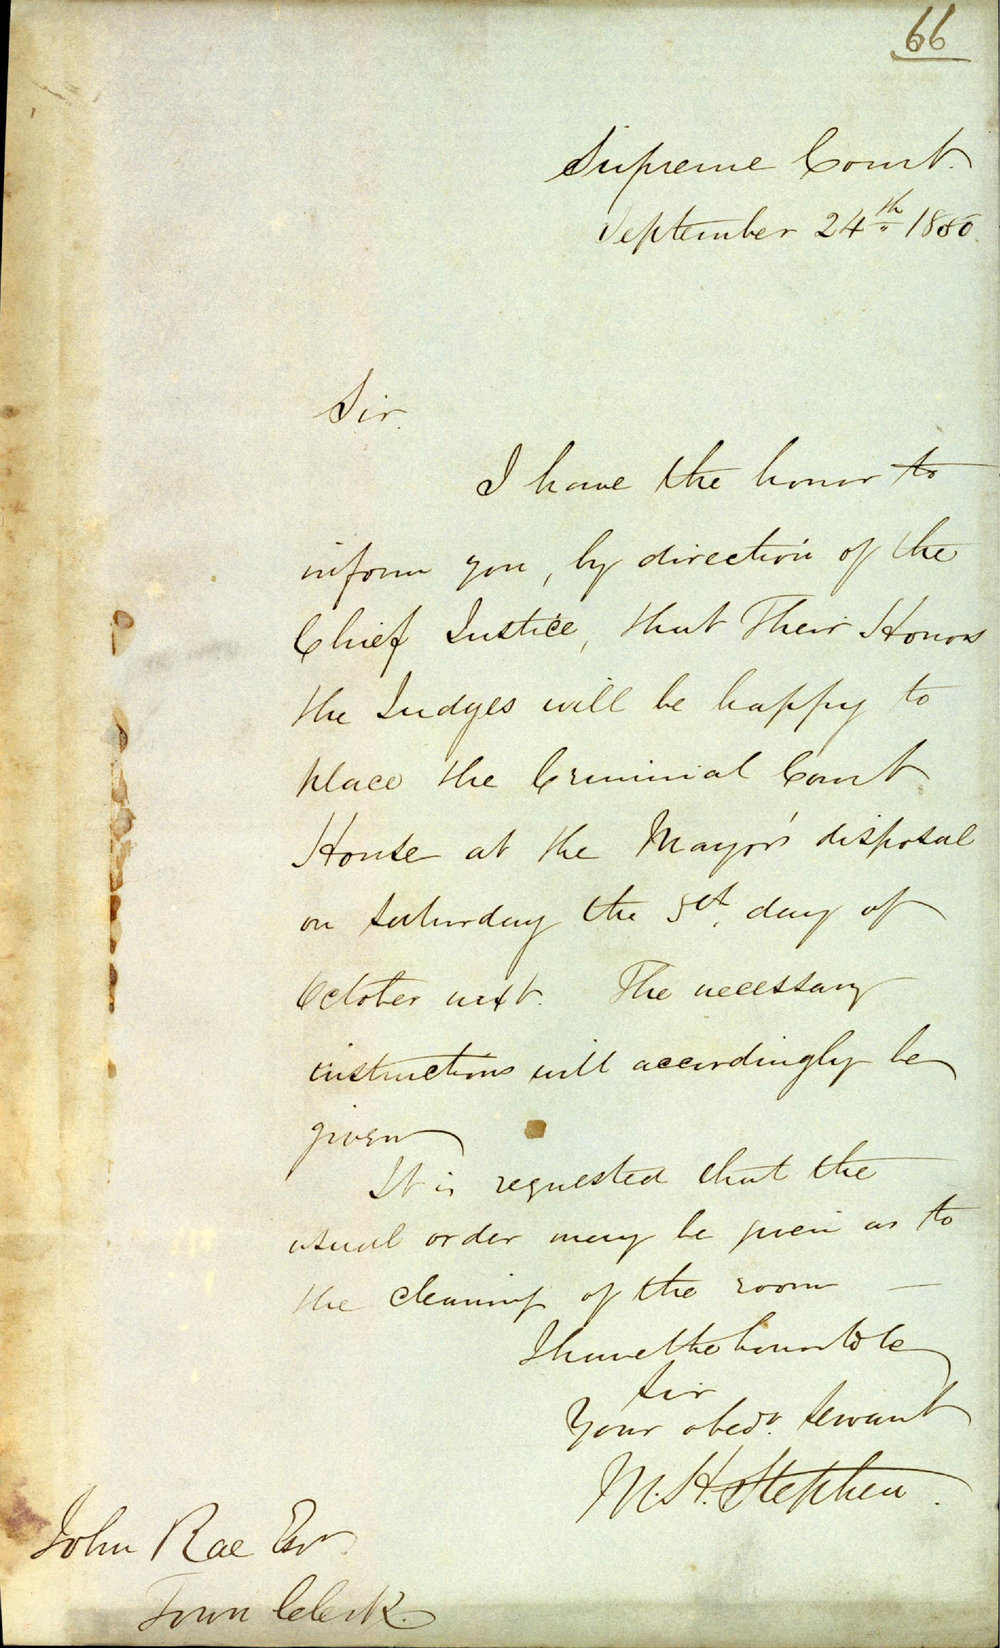 66
Supreme Court.
September 24th 1850.
Sir.
I have the honor to
inform you, by direction of the
Chief Justice, that Their Honors
the Judges will be happy to
place the Criminal Court
House at the Mayor's disposal
on Saturday the 5th. day of
October next. The necessary
instructions will accordingly be
given
It is requested that the
usual order may be given as to
the cleaning of the room —
I have the honor to be
Sir
Your obedt. Servant
M.H. Stephen.
John Rae Esqr.
Town Clerk.